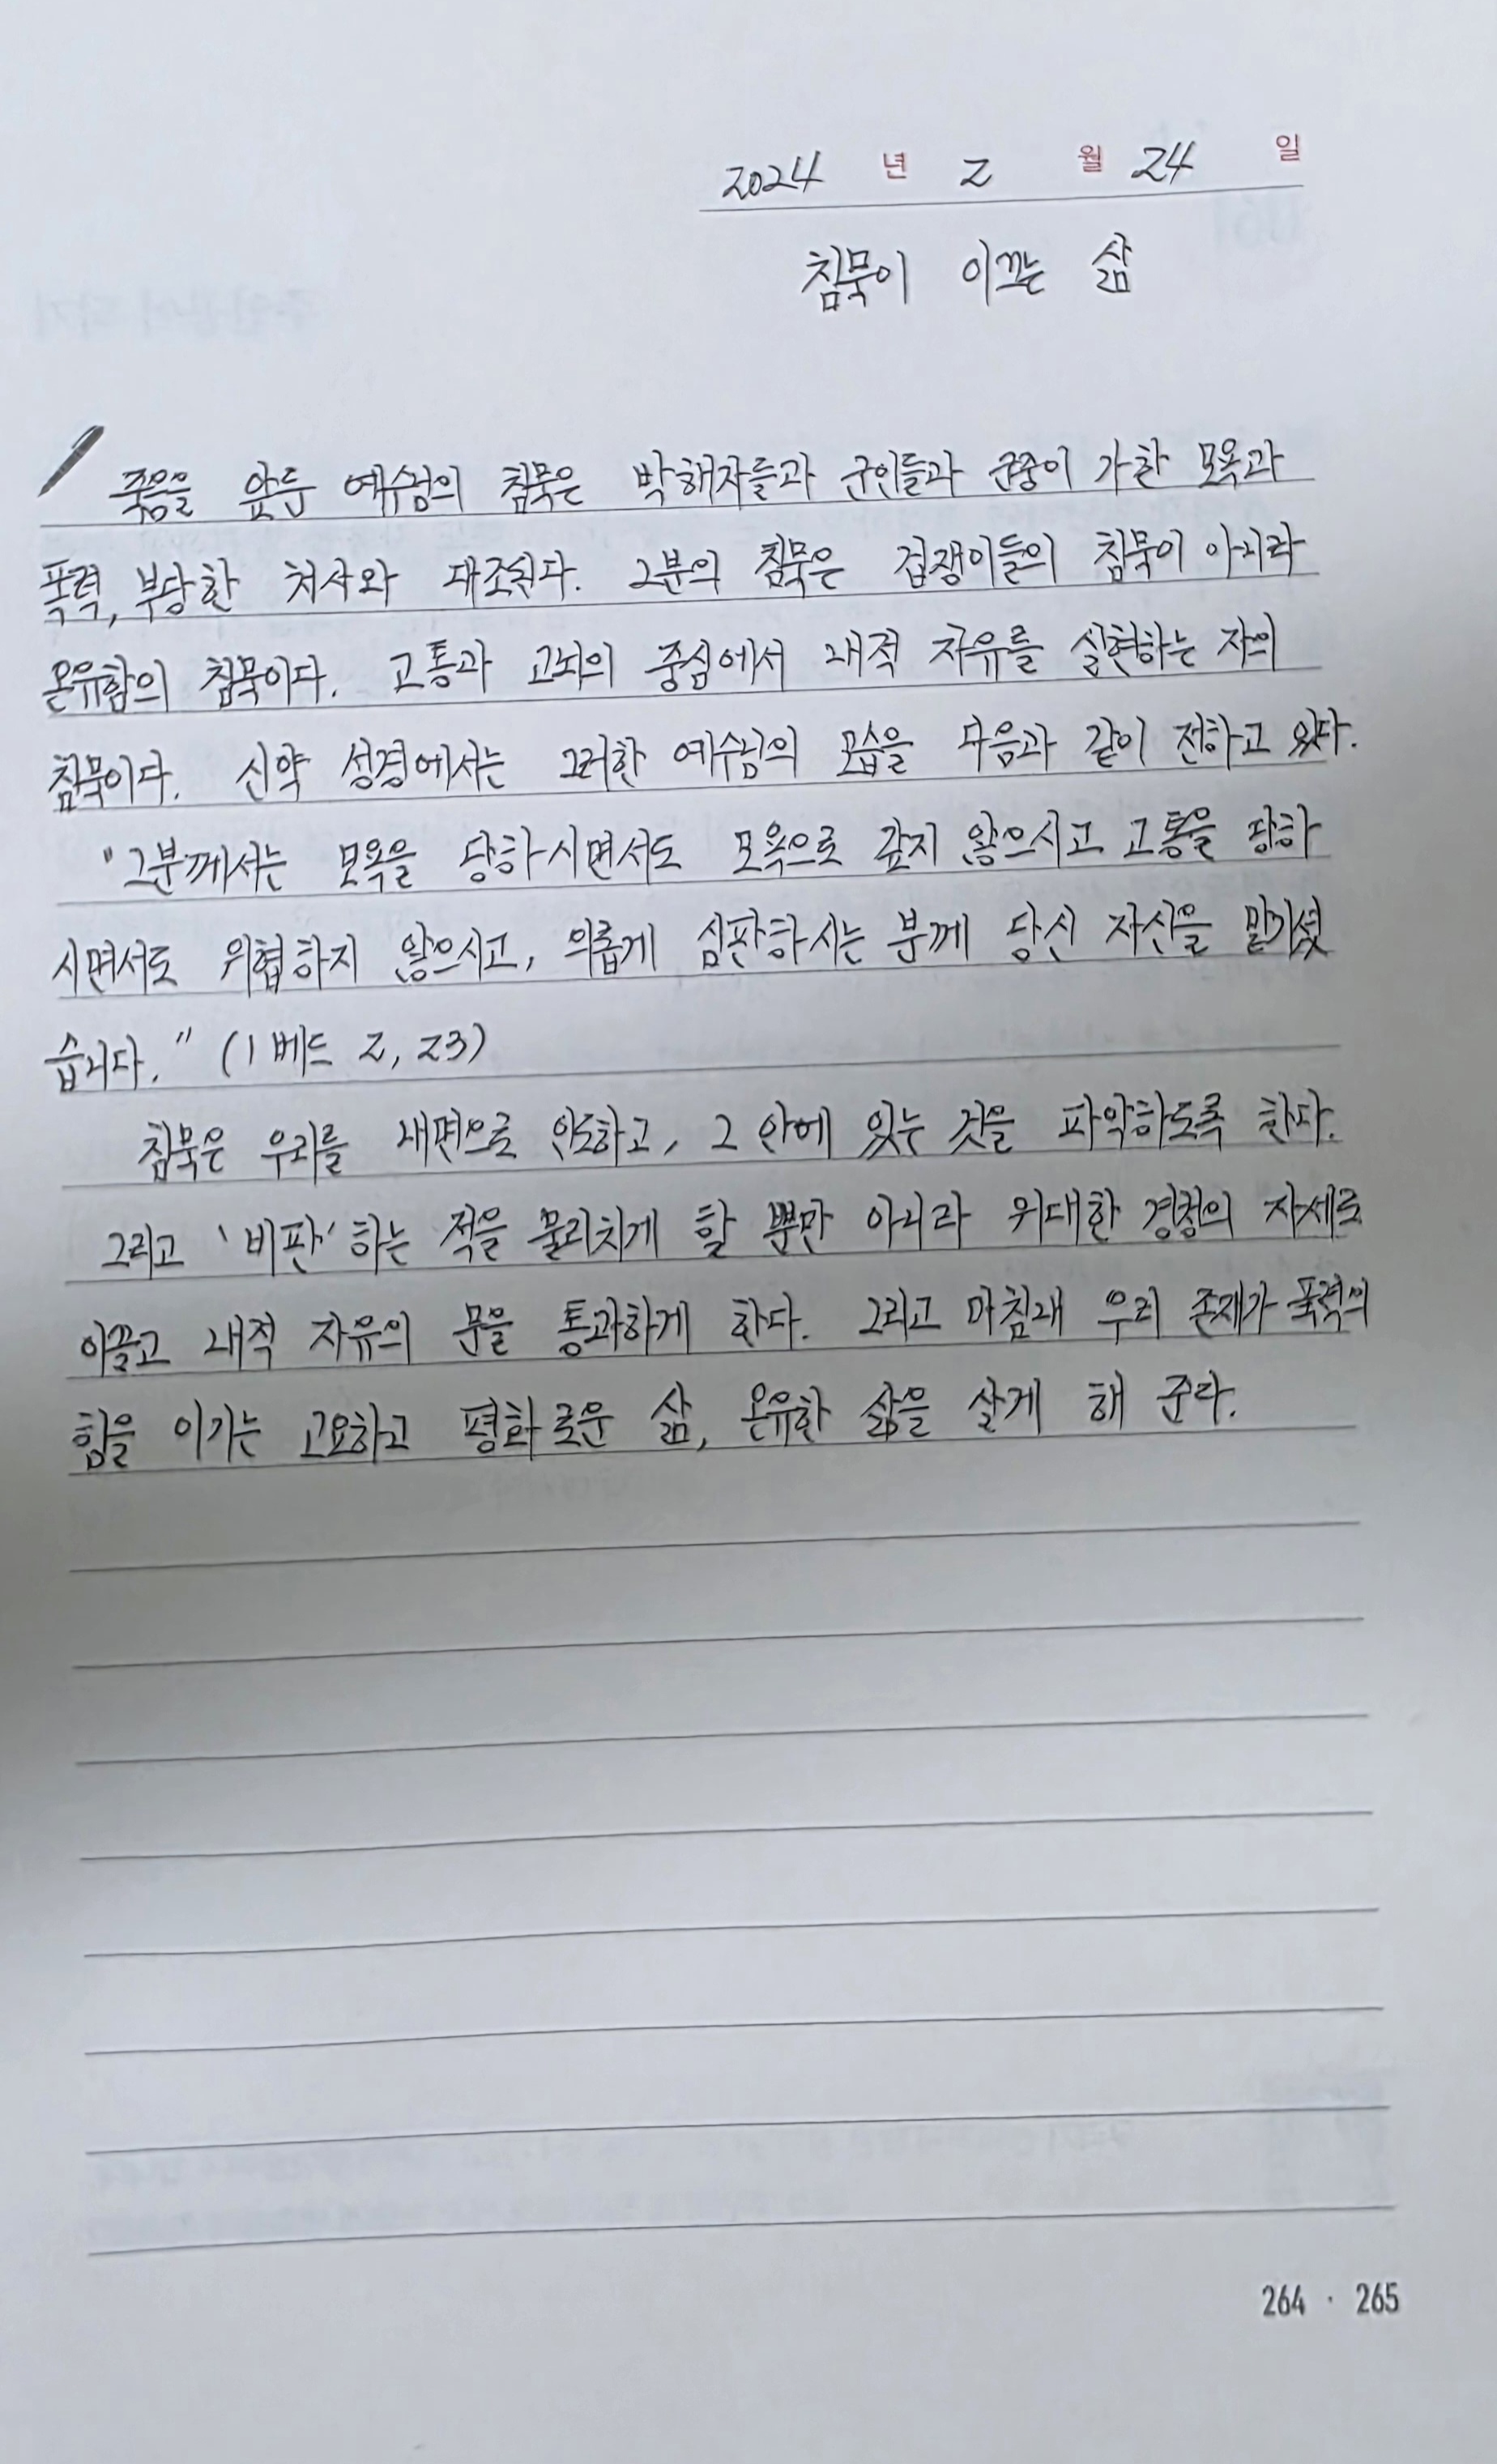 2024 년 2 월 24 일
침묵이 이끄는 삶
죽음을 앞둔 예수님의 침묵은 박해자들과 군인들과 군중이 가한 모욕과
폭력, 부당한 처사와 대조된다. 그분의 침묵은 겁쟁이들의 침묵이 아니라
온유함의 침묵이다. 고통과 고뇌의 중심에서 내적 자유를 실현하는 자의
침묵이다. 신약 성경에서는 그러한 예수님의 모습을 다음과 같이 전하고 있다.
"그분께서는 모욕을 당하시면서도 모욕으로 갚지 않으시고 고통을 당하
시면서도 위협하지 않으시고, 의롭게 심판하시는 분께 당신 자신을 맡기셨
습니다." (1 베드 2, 23)
침묵은 우리를 내면으로 인도하고, 그 안에 있는 것을 파악하도록 한다.
그리고 '비판'하는 적을 물리치게 할 뿐만 아니라 위대한 경청의 자세로
이끌고 내적 자유의 문을 통과하게 한다. 그리고 마침내 우리 존재가 폭력의
힘을 이기는 고요하고 평화로운 삶, 온유한 삶을 살게 해 준다.
264 · 265